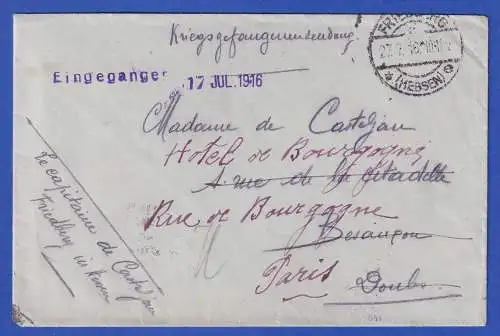 Kriegsgefangenensendung.
FRIEDBERG
27.7.16
* (HESSEN) *
Eingegangen 17 JUL. 1916
Madame de Casteljau
Hotel de Bourgogne
4 rue de la Citadelle
Rue de Bourgogne
Besançon
Paris
Doubs
Le capitaine de Casteljau
Friedberg in Hessen